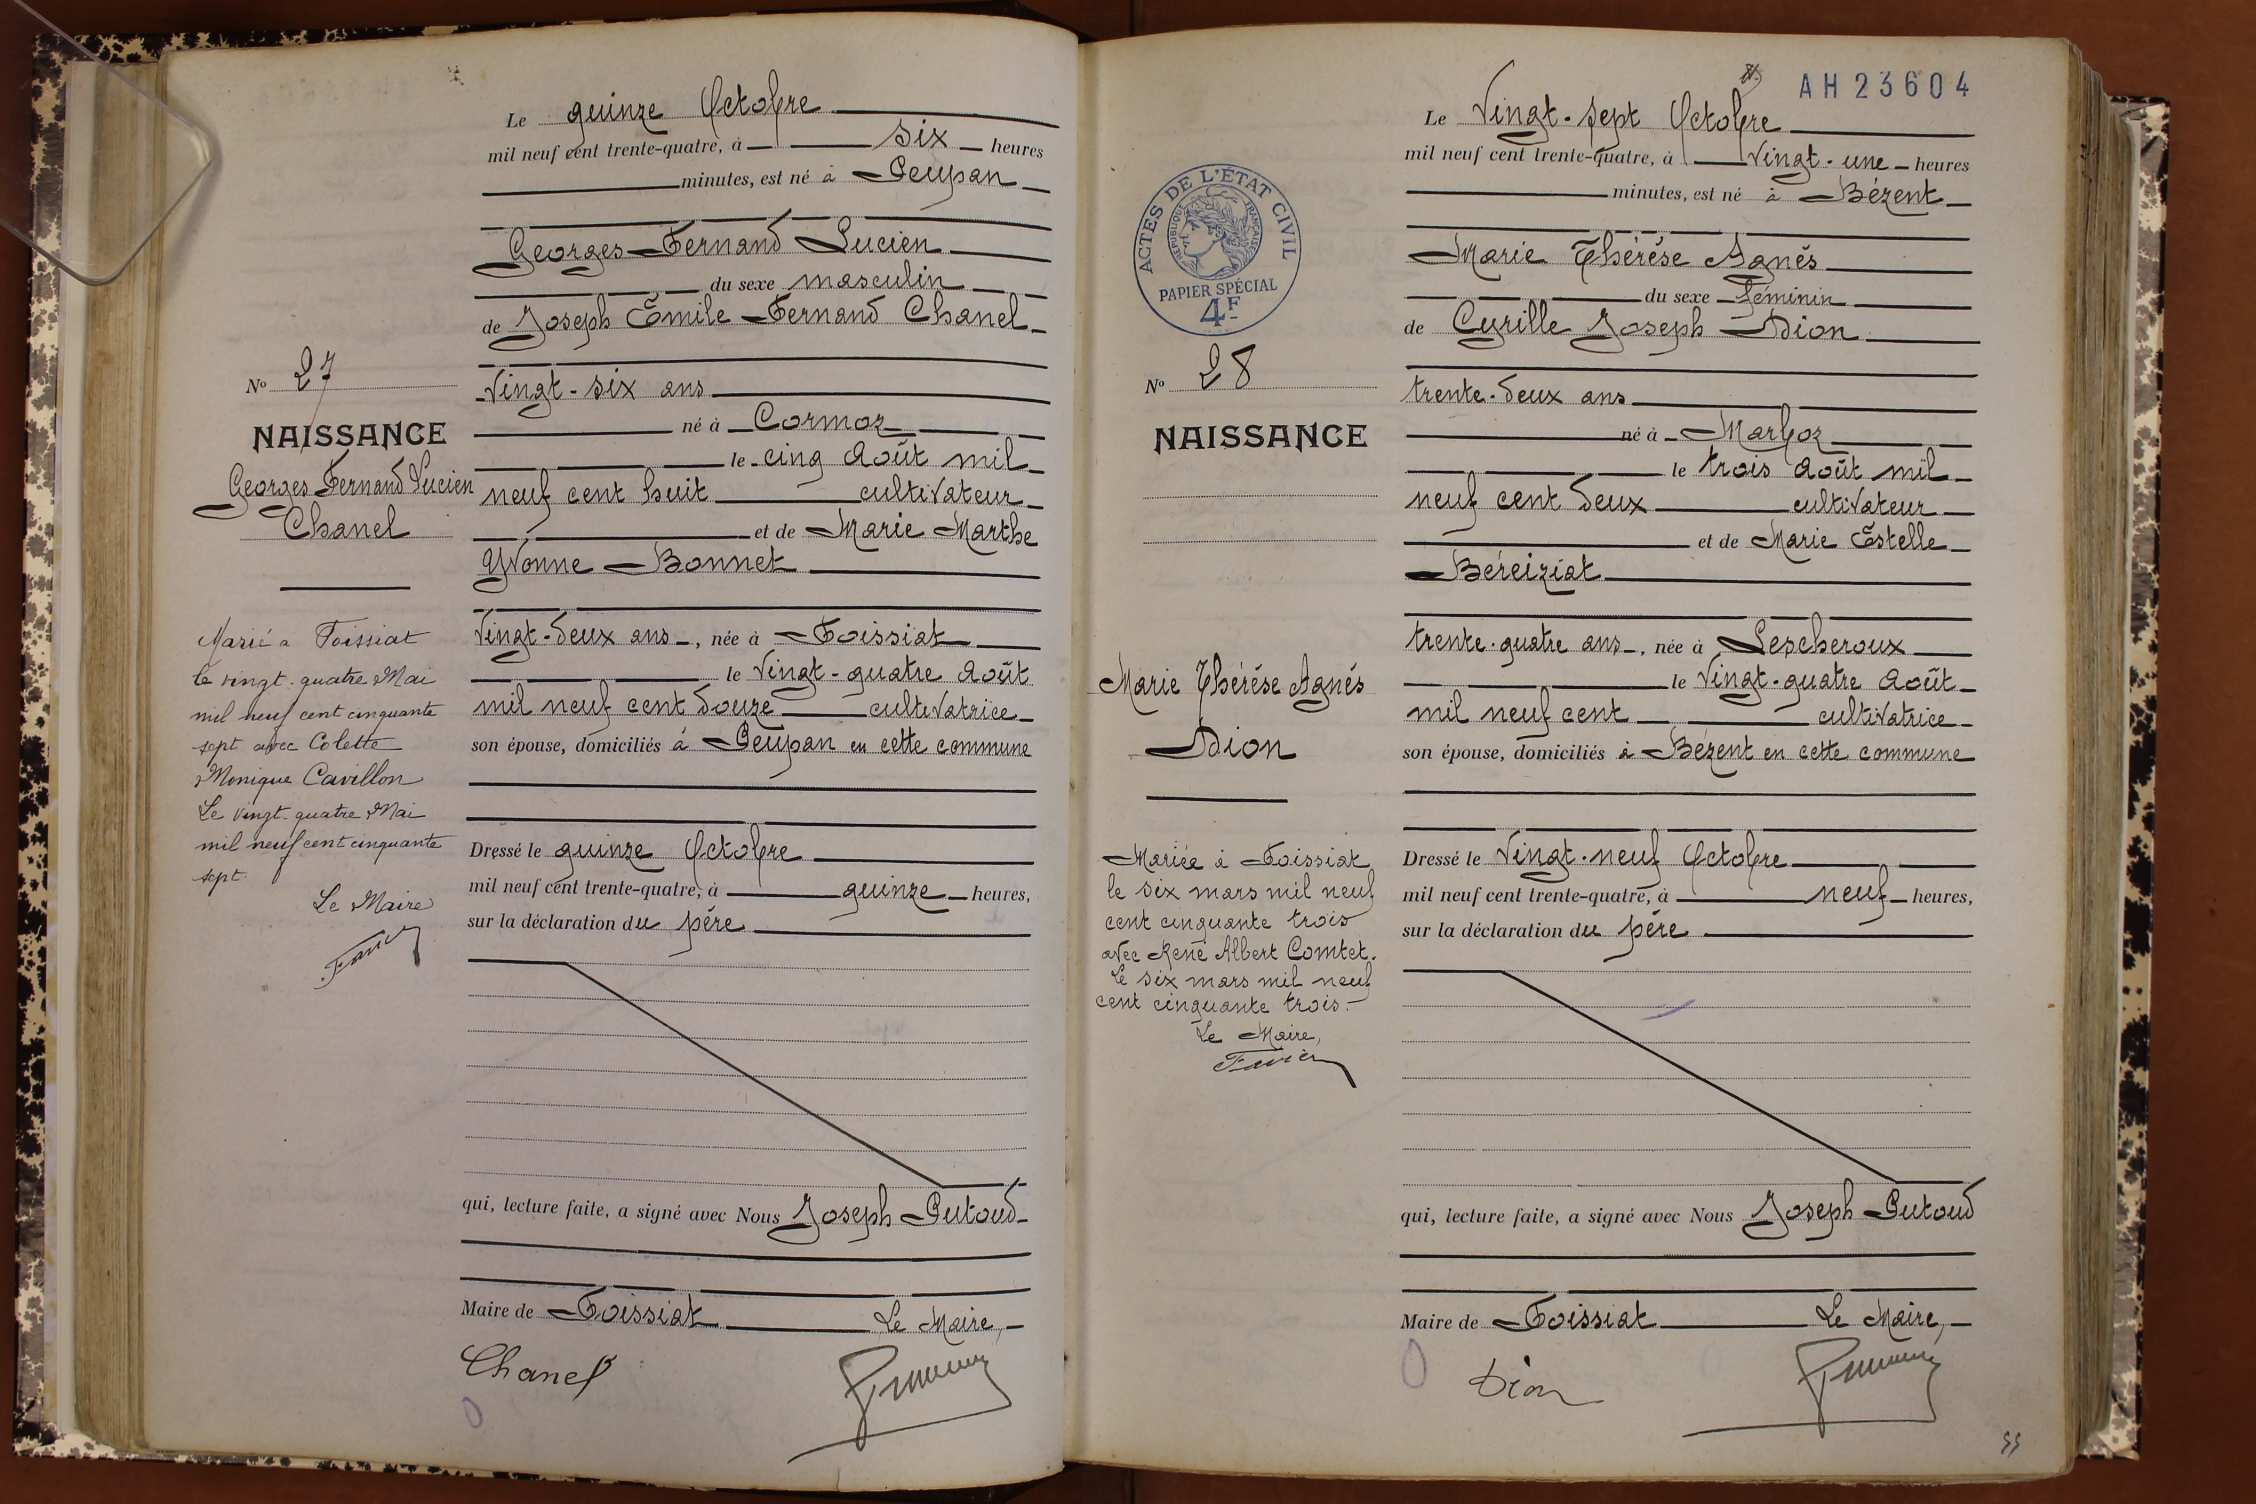 Le quinze Octobre
mil neuf cent trente-quatre, à six heures
minutes, est né à Peupan
Georges Fernand Lucien
du sexe masculin
de Joseph Emile Fernand Chanel
vingt-six ans
né à Cormoz
le cinq Août mil
neuf cent huit cultivateur
et de Marie Marthe
Yvonne Bonnet
vingt-deux ans, née à Foissiat
le vingt-quatre Août
mil neuf cent douze cultivatrice
son épouse, domiciliés à Peupan en cette commune
Dressé le quinze Octobre
mil neuf cent trente-quatre, à quinze heures,
sur la déclaration du père
qui, lecture faite, a signé avec Nous Joseph Putoud
Maire de Foissiat Le Maire,
Chanel
No 27
NAISSANCE
Georges Fernand Lucien
Chanel
Marié a Foissiat
le vingt-quatre Mai
mil neuf cent cinquante
sept avec Colette
Monique Cavillon
Le vingt-quatre Mai
mil neuf cent cinquante
sept.
Le Maire
AH 23604
Le Vingt-sept Octobre
mil neuf cent trente-quatre, à vingt-une heures
minutes, est né à Bézent
Marie Thérèse Agnès
du sexe féminin
de Cyrille Joseph Dion
trente-deux ans
né à Marboz
le trois Août mil
neuf cent deux cultivateur
et de Marie Estelle
Béreiziat
trente-quatre ans, née à Lescheroux
le vingt-quatre Août
mil neuf cent cultivatrice
son épouse, domiciliés à Bézent en cette commune
Dressé le vingt-neuf Octobre
mil neuf cent trente-quatre, à neuf heures,
sur la déclaration du père
qui, lecture faite, a signé avec Nous Joseph Putoud
Maire de Foissiat Le Maire,
Dion
ACTES DE L'ÉTAT CIVIL
RÉPUBLIQUE FRANÇAISE
PAPIER SPÉCIAL
4F
No 28
NAISSANCE
Marie Thérèse Agnès
Dion
Mariée à Foissiat
le six mars mil neuf
cent cinquante trois
avec René Albert Comtet.
Le six mars mil neuf
cent cinquante trois.-
Le Maire,
Favier
55